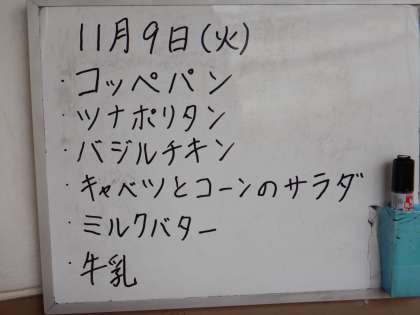 11月9日(火)
・コッペパン
・ツナポリタン
・バジルチキン
・キャベツとコーンのサラダ
・ミルクバター
・牛乳